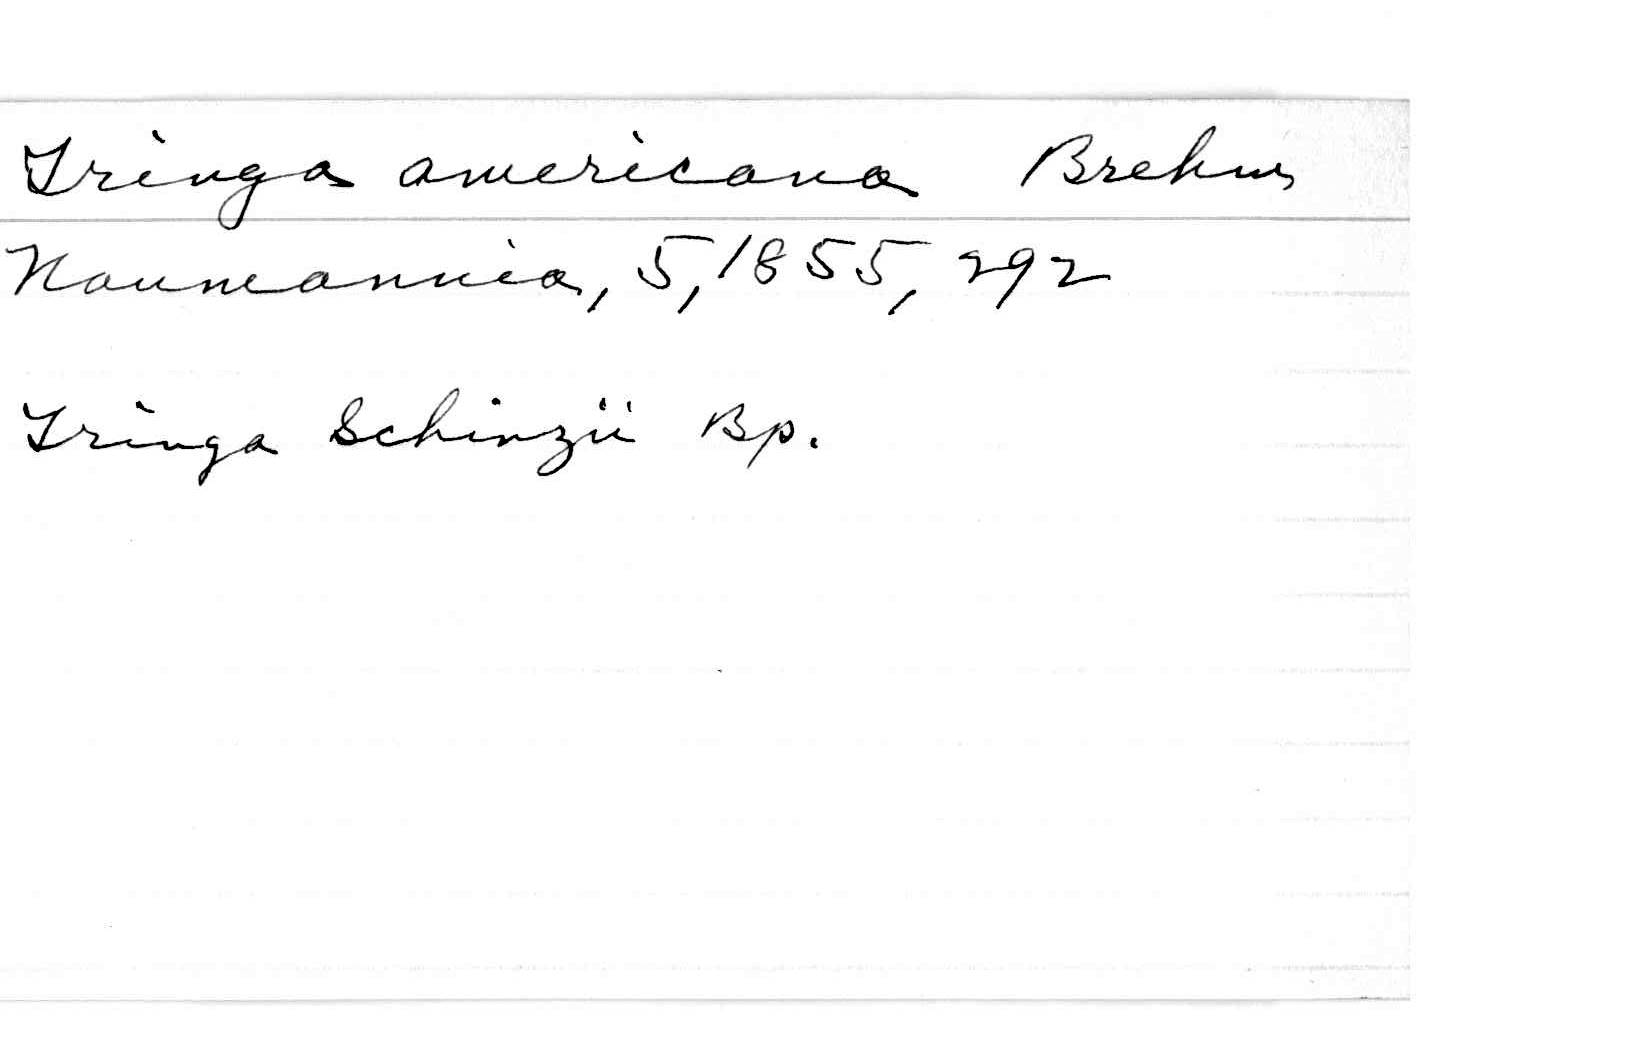 Tringa americana Brehm
Naumannia, 5, 1855, 292
Tringa Schinzii Bp.